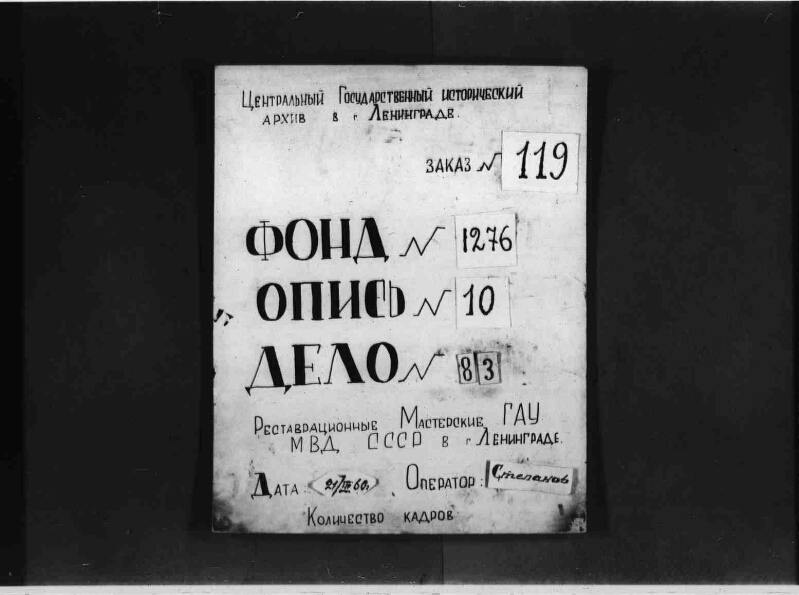 Центральный Государственный исторический
архив в г Ленинграде.
заказ № 119
ФОНД № 1276
ОПИСЬ № 10
ДЕЛО № 83
Реставрационные Мастерские ГАУ
МВД СССР в г Ленинграде.
Дата: 60г. Оператор: Степанов
Количество кадров